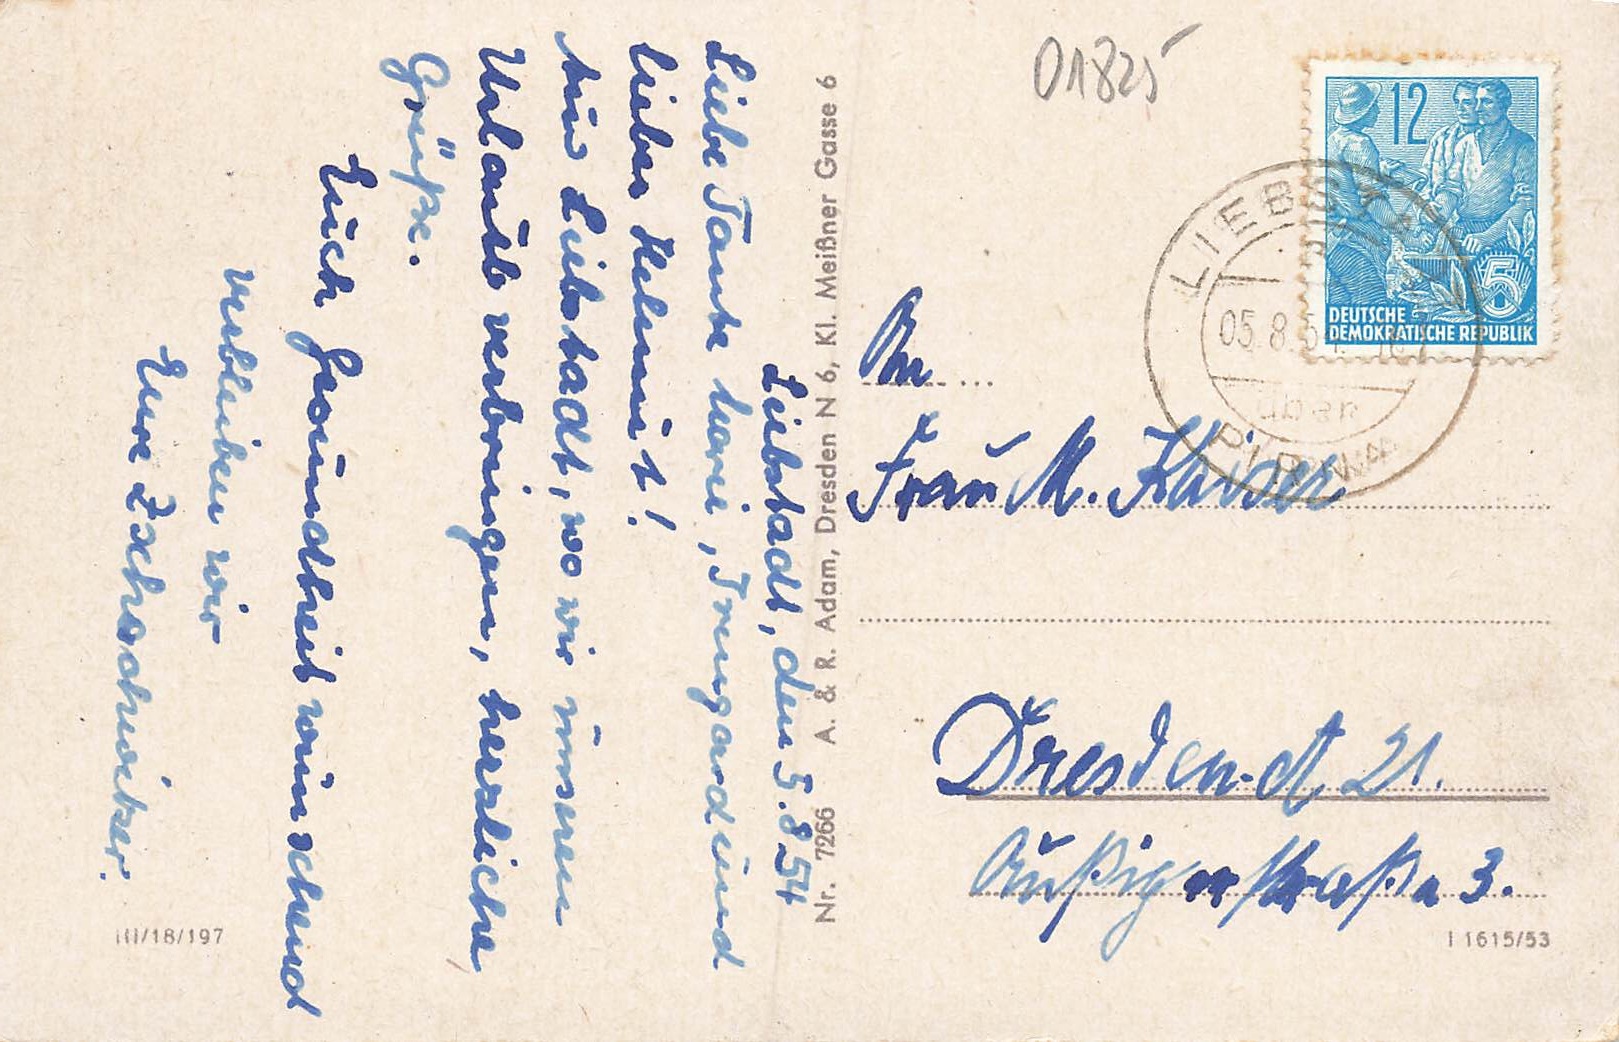 Liebstadt, den 5.8.54
Liebe Tante Marie, Irmgard und
lieber Helmut!
Aus Liebstadt, wo wir unseren
Urlaub verbringen, herzliche
Grüße.
Euch Gesundheit wünschend
verbleiben wir
Eure
Nr. 7266 A. & R. Adam, Dresden N 6, Kl. Meißner Gasse 6
III/18/197
01825
12
5
DEUTSCHE
DEMOKRATISCHE REPUBLIK
LIEBSTADT
05.8.54
über
PIRNA
An
Frau M. Kaiser
Dresden-A 21.
Außigerstraße 3.
I 1615/53